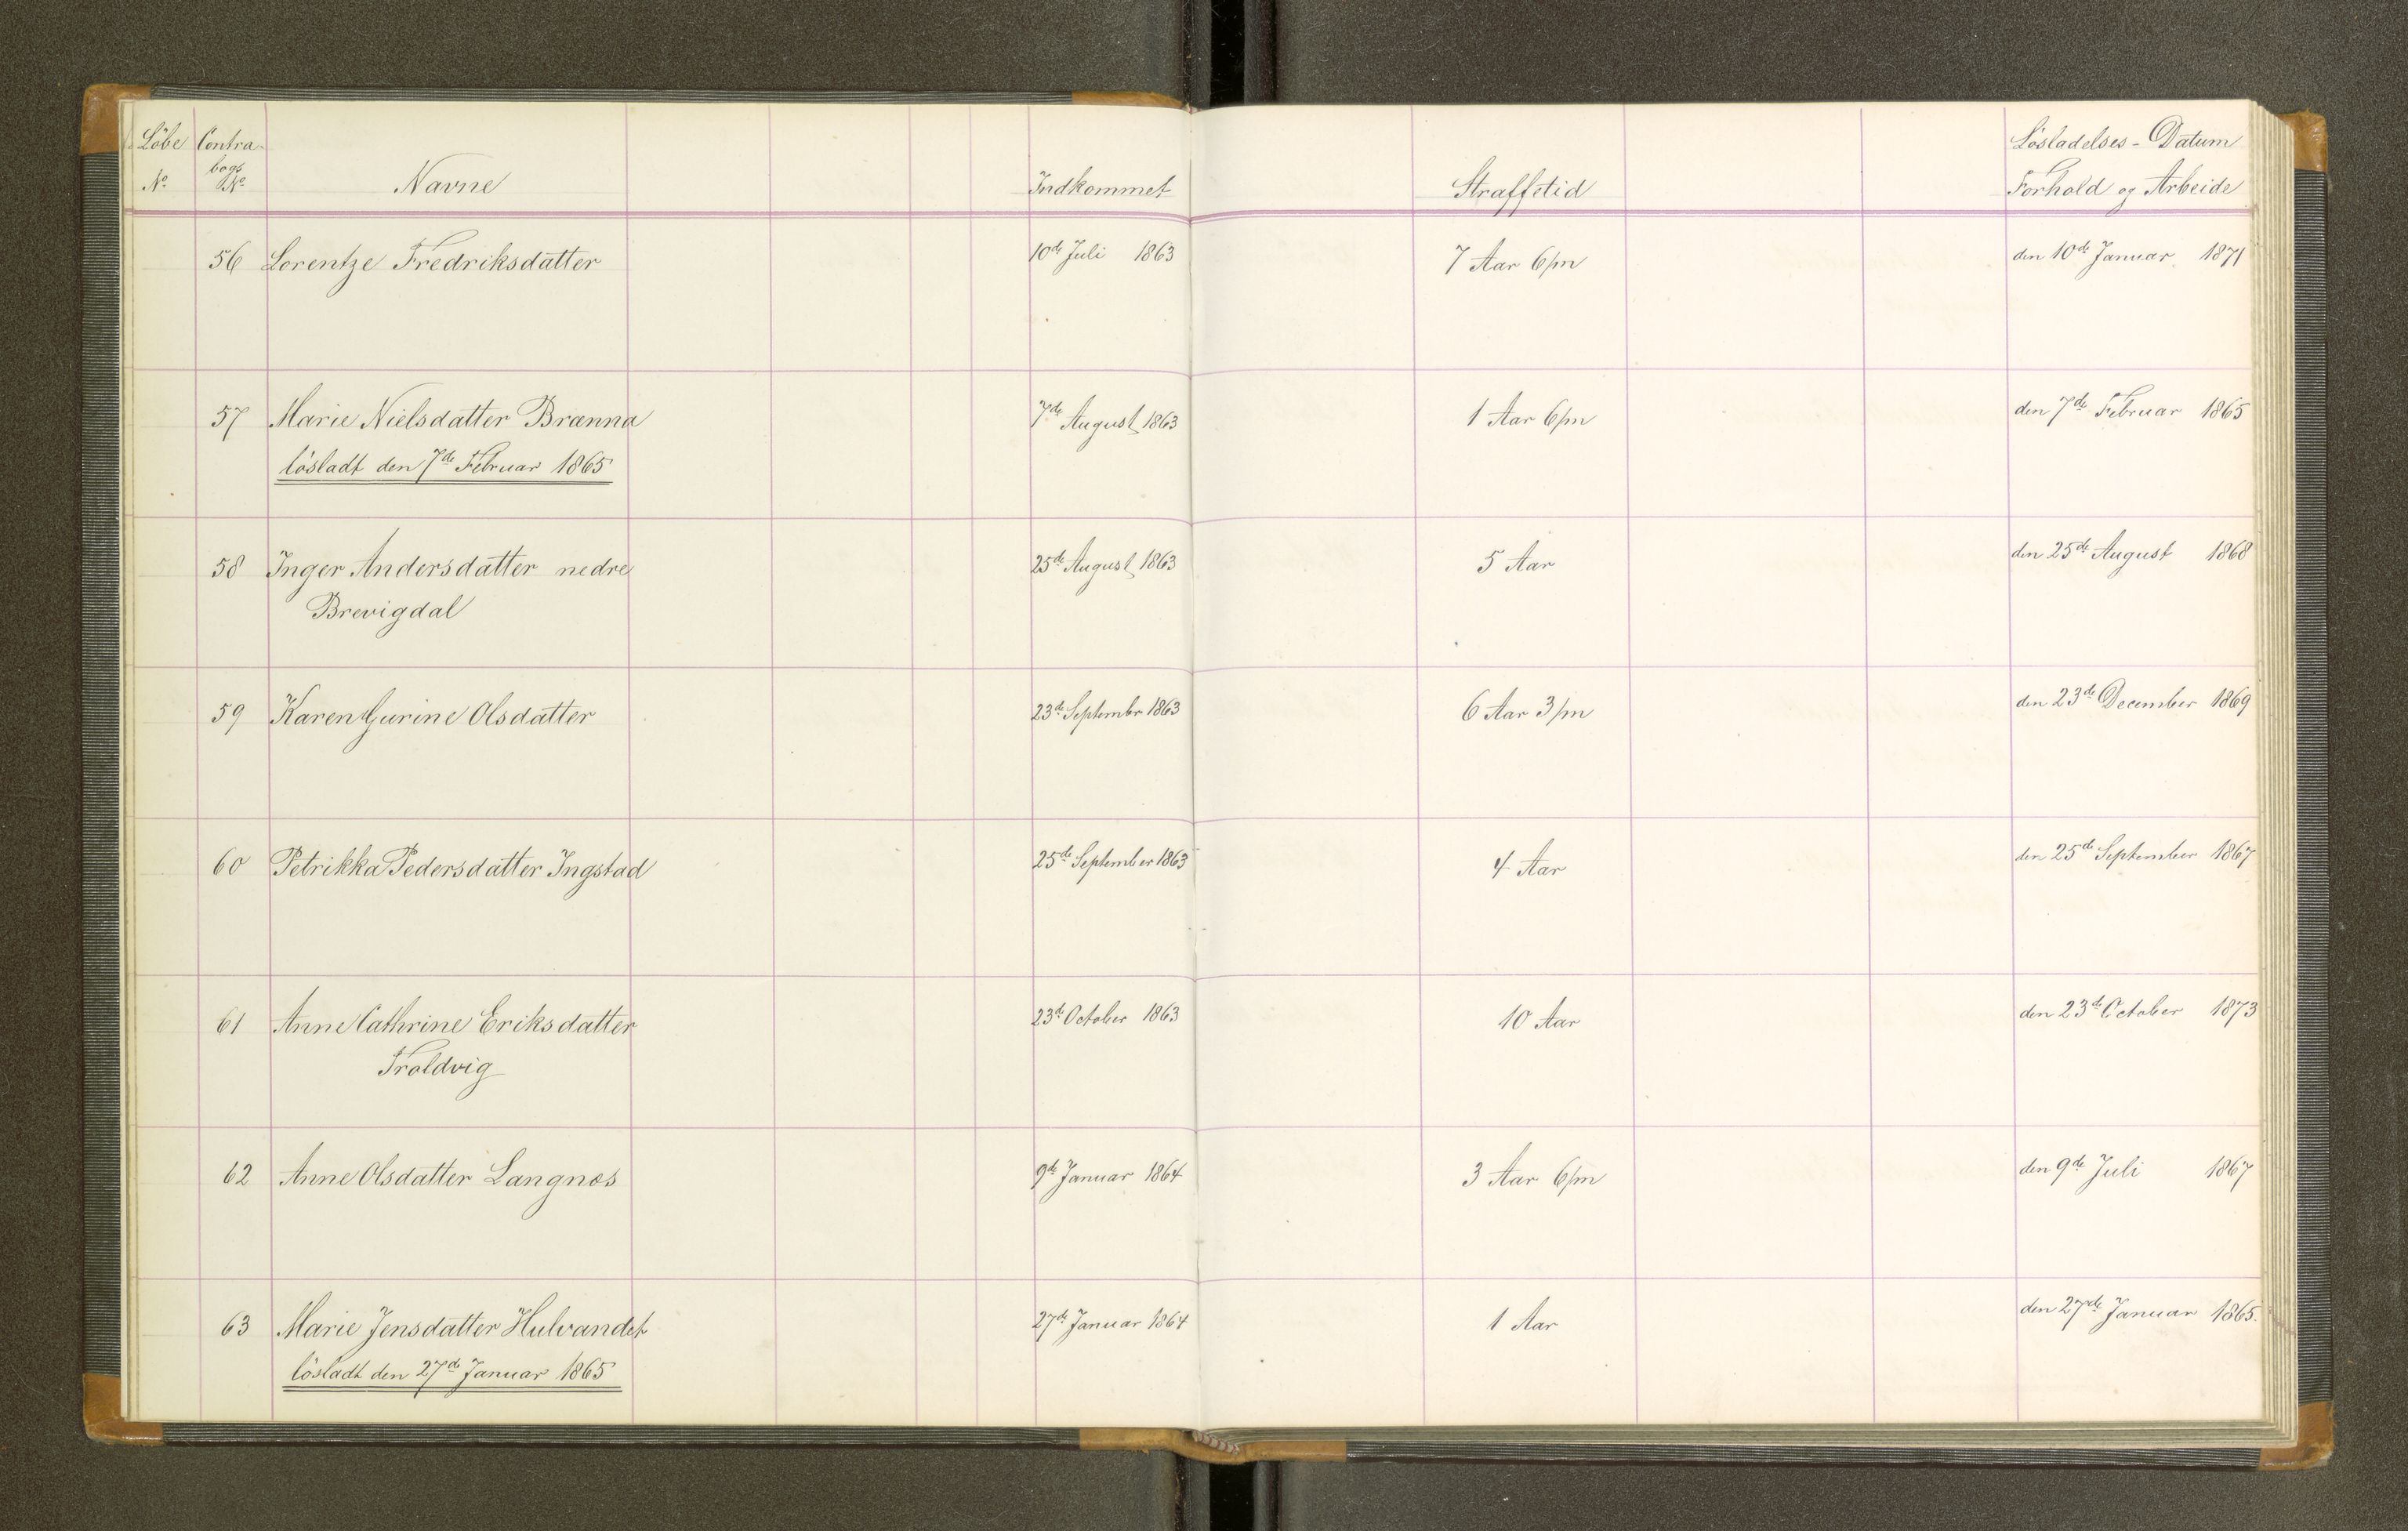 Löbe Contra- Lösladelses-Datum
bogs
No No Navne Indkommet Straffetid Forhold og Arbeide
56 Lorentze Fredriksdatter 10de Juli 1863 7 Aar 6/m den 10de Januar 1871
57 Marie Nielsdatter Brænna 7de August 1863 1 Aar 6/m den 7de Februar 1865
lösladt den 7de Februar 1865
58 Inger Andersdatter nedre 25de August 1863 5 Aar den 25de August 1868
Brevigdal
59 Karen Gurine Olsdatter 23de September 1863 6 Aar 3/m den 23de December 1869
60 Petrikka Pedersdatter Ingstad 25de September 1863 4 Aar den 25de September 1867
61 Anne Cathrine Eriksdatter 23de October 1863 10 Aar den 23de October 1873
Troldvig
62 Anne Olsdatter Langnæs 9de Januar 1864 3 Aar 6/m den 9de Juli 1867
63 Marie Jensdatter Hulvandet 27de Januar 1864 1 Aar den 27de Januar 1865.
lösladt den 27de Januar 1865